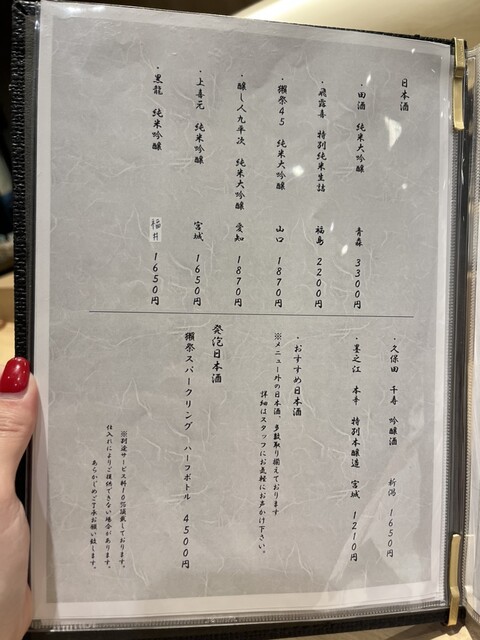 日本酒
・田酒　純米大吟醸　青森　3300円
・飛露喜　特別純米生詰　福島　2200円
・獺祭45　純米大吟醸　山口　1870円
・醸し人九平次　純米大吟醸　愛知　1870円
・上喜元　純米吟醸　宮城　1650円
・黒龍　純米吟醸　福井　1650円
・久保田　千寿　吟醸酒　新潟　1650円
・墨之江　本辛　特別本醸造　宮城　1210円
・おすすめ日本酒
※メニュー外の日本酒、多数取り揃えております
詳細はスタッフにお気軽にお声かけ下さい。
発泡日本酒
獺祭スパークリング　ハーフボトル　4500円
※別途サービス料10%頂戴しております。
仕入れによりご提供できない場合があります。
あらかじめご了承お願い致します。